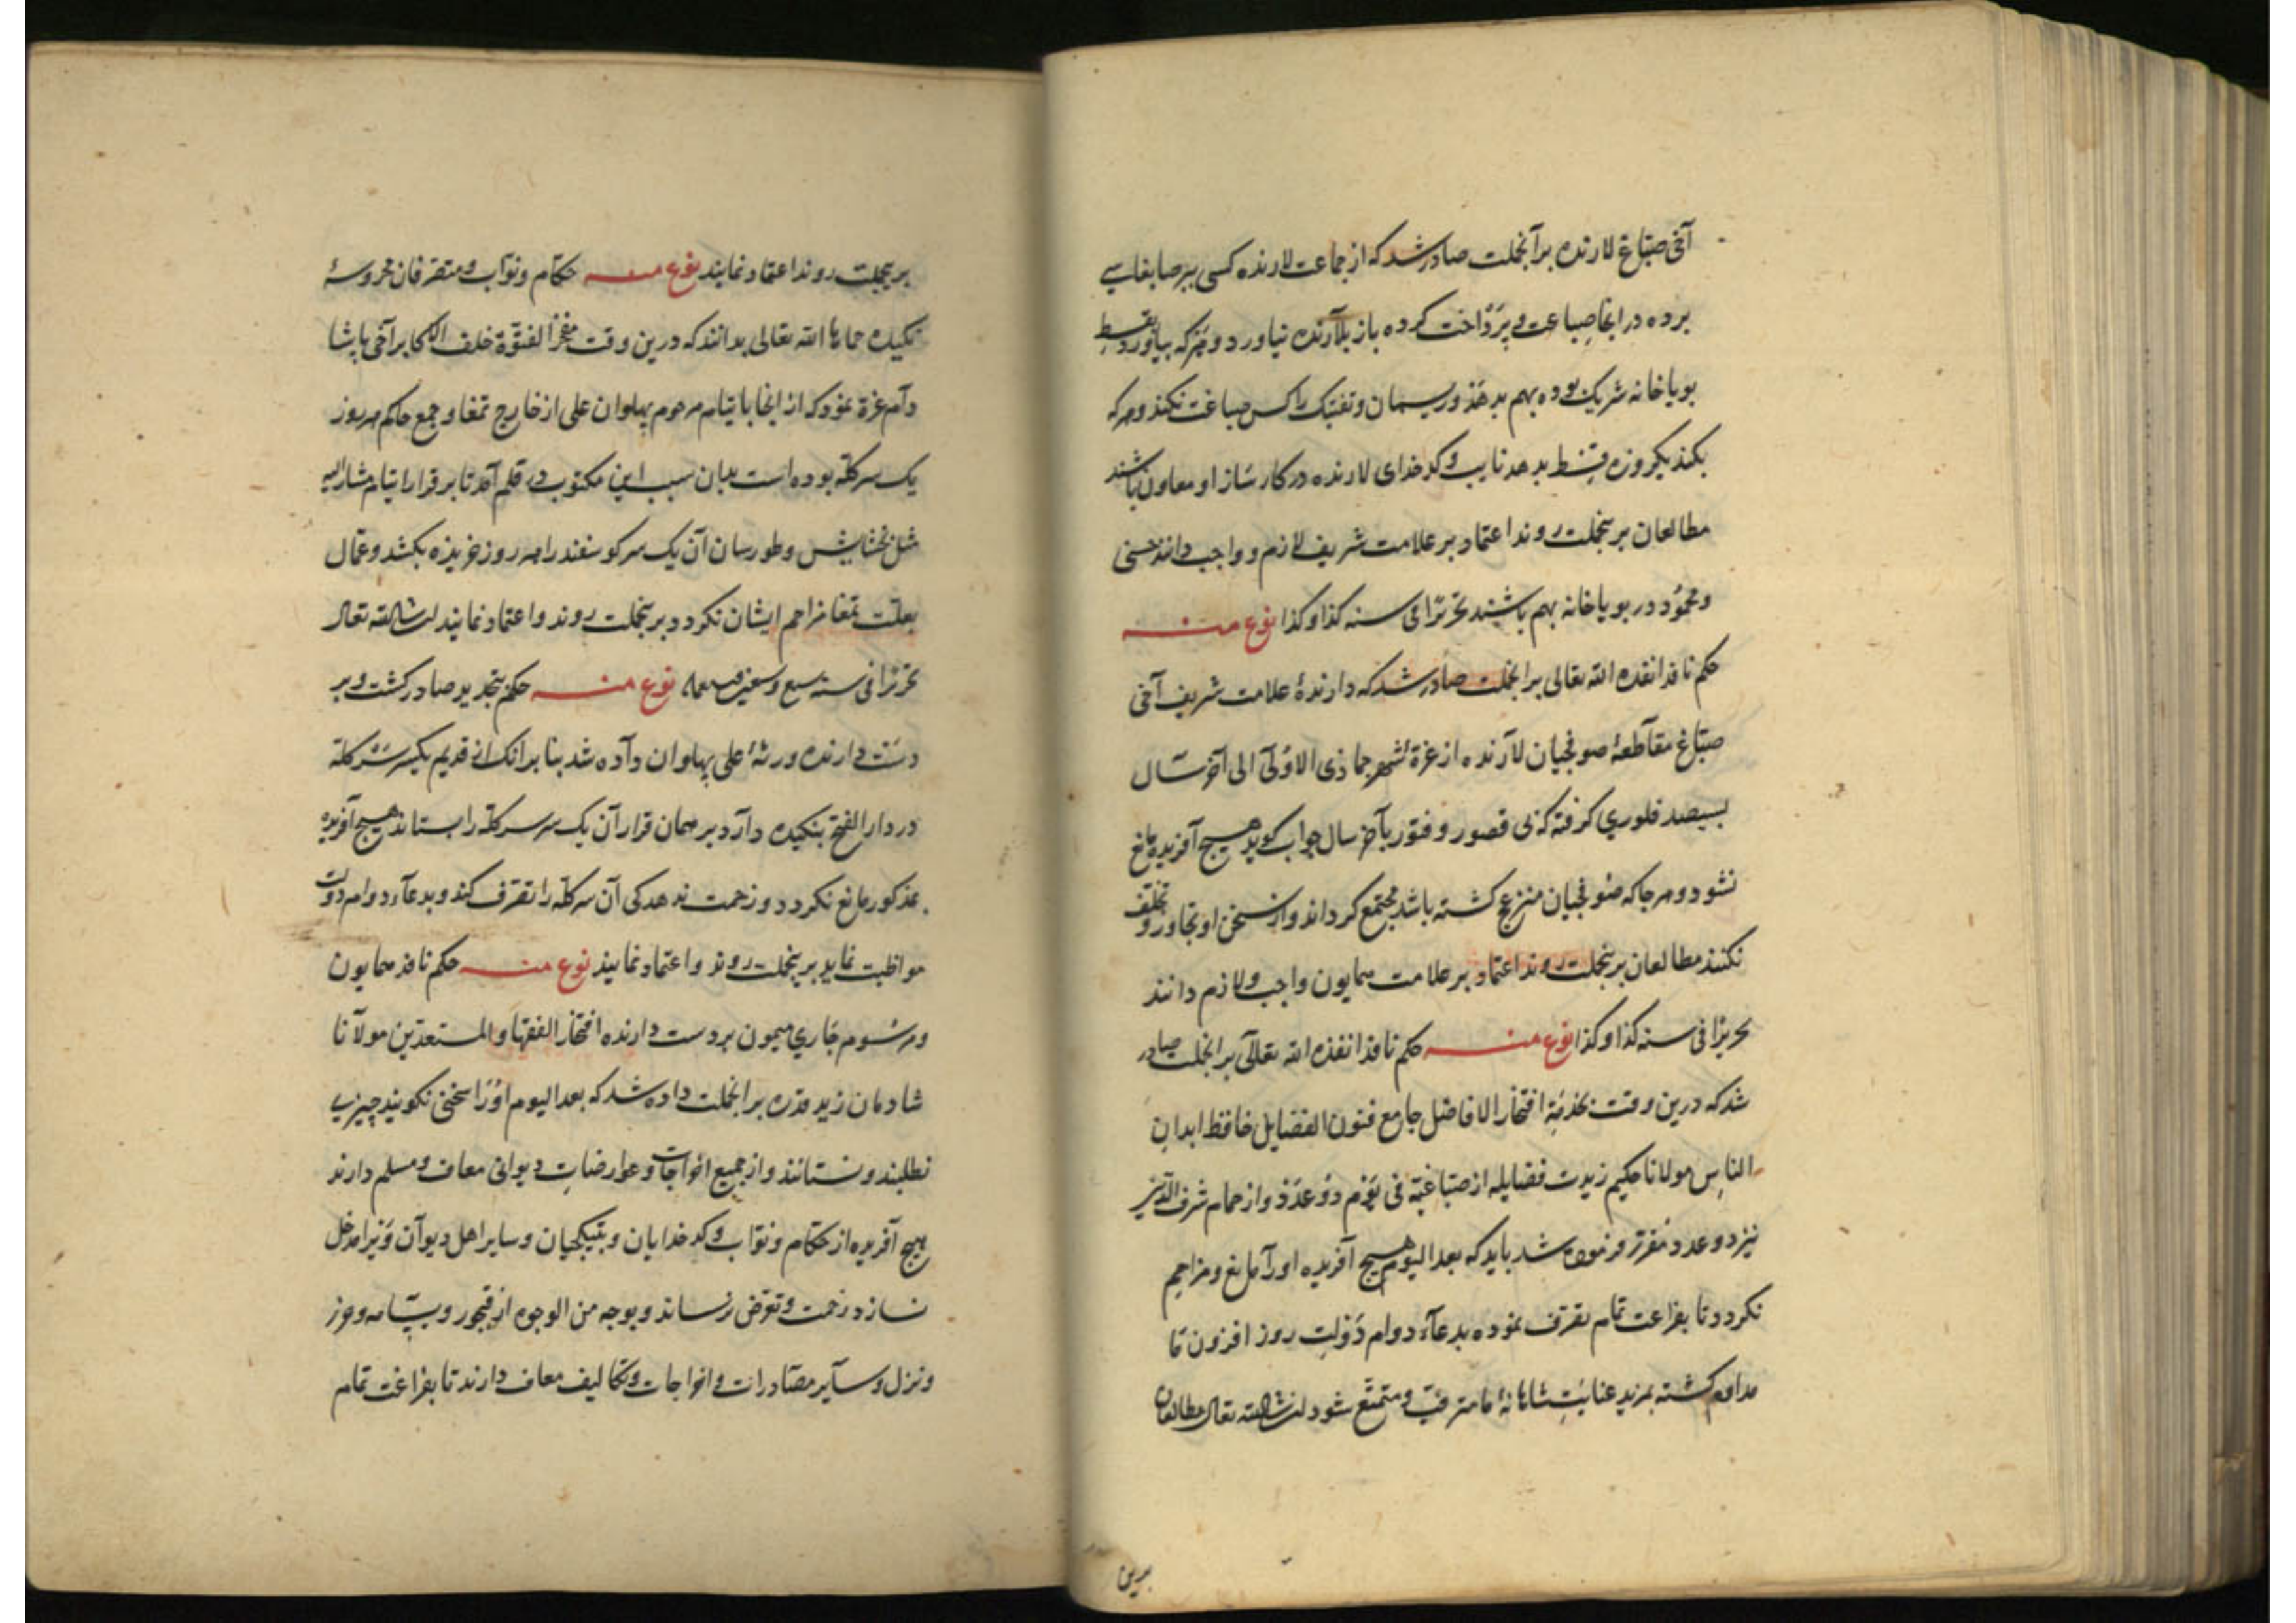 آخی صباغ لارنده برآنجملت صادر شد که از جماعت لارنده کسی
برده در انجا صباعت و پرداخت کرده باز بلارنده نیاورد و هر که بیاورد بقسط
بویاخانه شریک بوده بهم بدهند و ریسمان و تفتیک را کس صباغت نکند و هر که
بکند یکروزه قسط بدهد نایب و کدخدای لارنده در کار ساز او معاون باشند
مطالعان برینجملت روند اعتماد بر علامت شریف لازم و واجب دانند حسنی
و محمود در بویاخانه بهم باشند تحریرا فی سنه کذا و کذا نوع منه
حکم نافذ انفذه الله تعالی برانجملت صادر شد که دارندهٔ علامت شریف آخی
صباغ مقاطعهٔ صوفجیان لارنده از غرة شهر جماذی الاولی الی آخر سال
بسیصد فلوری گرفته کی بی قصور و فتور بآخر سال جواب کوید هیچ آفریده مانع
نشود و هر جا که صوفجیان منزعج کشته باشد مجتمع کرداند و از سخن او تجاوز و تخلف
نکنند مطالعان برینجملت روند اعتماد بر علامت همایون واجب و لازم دانند
تحریرا فی سنه کذا و کذا نوع منه حکم نافذ انفذه الله تعالی برانجملت صادر
شد که درین وقت بخدمة افتخار الافاضل جامع فنون الفضایل حافظ ابدان
الناس مولانا حکیم زیدت فضایله از صباغیه فی یوم دو عدد و از حمام شرف الدین
نیز دو عدد مقرر فرموده شد باید که بعد الیوم هیچ آفریده اورا مانع و مزاحم
نکردد تا بفراغت تمام تصرف نموده بدعاء دوام دولت روز افزون ما
مداوم کشته بمزید عنایت شاهانهٔ ما مترقی و متمتع شود ان شاء الله تعالی مطالعان
برین
برینجملت روند اعتماد نمایند نوع منه حکام و نواب و متصرفان محروسهٔ
نکیده حماها الله تعالی بدانند که درین وقت مفخر الفتوة خلف الاکابر آخی پاشا
دام عزه نمود که از انجا بایتام مرحوم پهلوان علی از خارج تمغا و جمع حاکم هر روز
یک سر کله بوده است بدان سبب این مکتوب در قلم آمد تا بر قرار ایتام مشار الیه
مثل بخشایش و طورسان آن یک سر کوسفند را هر روز خریذه بکشد و عمال
بعلت تمغا مزاحم ایشان نکردد برینجملت روند و اعتماد نمایند ان شاء الله تعالی
تحریرا فی سنه سبع و سبعین و سبعمایه نوع منه حکم بتجدید صادر کشت و بر
دست دارنده ورثهٔ علی پهلوان داده شد بنا برانک از قدیم یکسر کله
در دار الفتح بنکیده دارد بر همان قرار آن یک سر کله را بستاند هیچ آفریده
مذکور مانع نکردد و زحمت ندهد کی آن سر کله را تصرف کند و بدعاء دوام دولت
مواظبت نماید برینجملت روند و اعتماد نمایند نوع منه حکم نافذ همایون
و مرسوم جاری میمون بر دست دارنده افتخار الفقها و المستعدین مولانا
شادمان زید قدره برانجملت داده شد که بعد الیوم اورا سخنی نکویند چیزی
نطلبند و نستانند و از جمیع اخراجات و عوارضات دیوانی معاف و مسلم دارند
هیچ آفریده از حکام و نواب و کدخدایان و بتیکجیان و سایر اهل دیوان ویرا مدخل
نسازد زحمت و تعرض نرساند و بوجه من الوجوه از قبجور و بیتامه و حزر
و نزل و سایر مصادرات و اخراجات و تکالیف معاف دارند تا بفراغت تمام